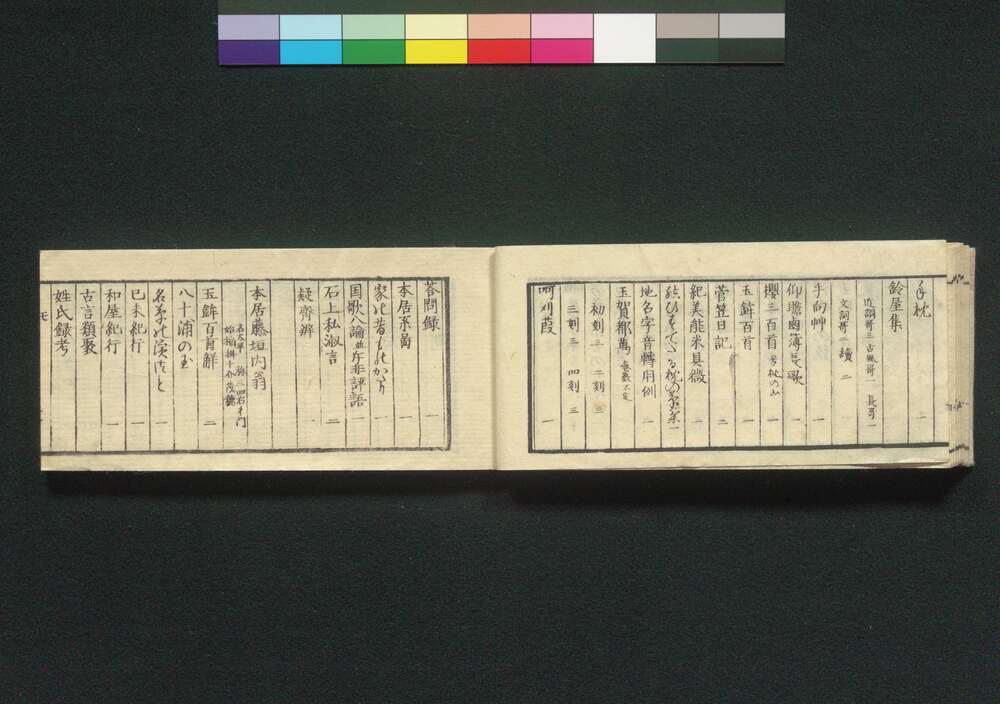 手枕 一
鈴屋集
近調哥三 古風哥一 長哥一
文詞哥二 續二
手向艸 一
仰瞻鹵簿長歌 一
櫻三百首 号枕の山 一
玉鉾百首 一
菅笠日記 二
紀美能米具微 一
地名字音轉用例 一
玉賀都萬 巻数不定
初刻三 二刻三
三刻三 四刻三
呵刈葭 一
答問録 一
本居系図 一
家の昔ものかたり 一
国歌八論並斥非評語 一
石上私淑言 二
疑齋辨 一
本居藤垣内翁
名大平 称三四右ヱ門
始稲掛十介茂穂
玉鉾百首解 二
八十浦の玉
己未紀行 一
和屋紀行 一
古言類聚
姓氏録考